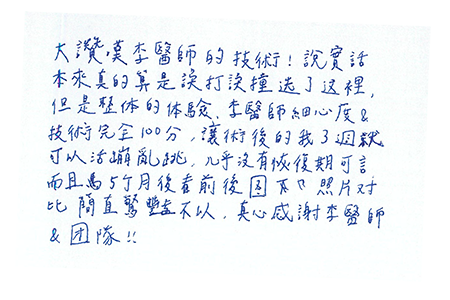 大讚嘆李醫師的技術! 說實話
本來真的算是誤打誤撞选了这裡,
但是整体的体驗、李醫師細心度&
技術完全100分,讓術後的我3週就
可以活蹦亂跳,几乎沒有恢復期可言
而且 5个月後看前後 照片对
比 簡直驚 不以,真心感謝李醫師
& 团隊!!